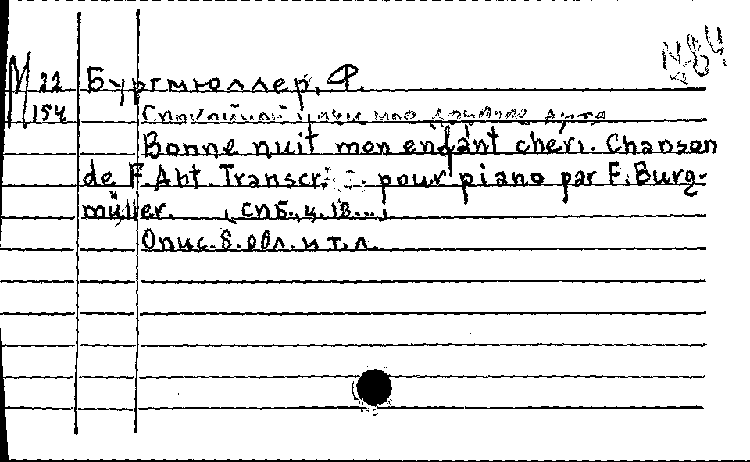 №84
М 22 Бургмюллер, Ф.
154 Спокойной ночи мое дитя
Bonne nuit mon enfant cheri. Chanson
de F. Abt. Transcr. pour piano par F. Burg-
müller. [СПб., ц. 18...]
Опис. в обл. и т.л.